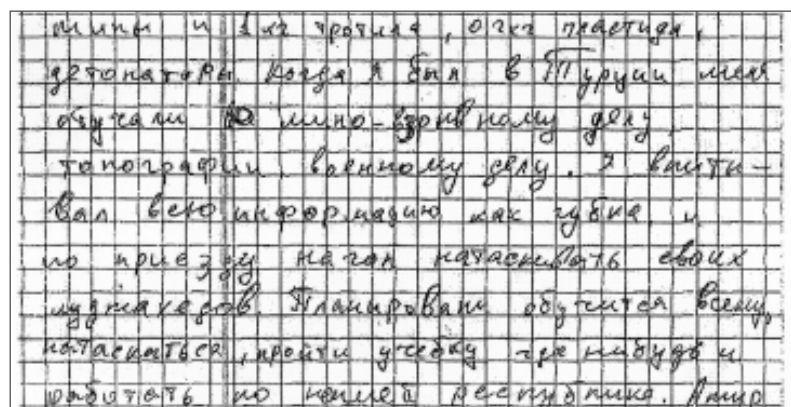 мины и 1 кг тротила, 0,2 кг пластида,
детонаторы. Когда я был в Турции меня
обучали минно-взрывному делу,
топографии, военному делу. Я впиты-
вал всю информацию как губка и
по приезду начал натаскивать своих
муджахедов. Планировали обучится всему,
натаскаться, пройти учебку где нибудь и
работать по нашей республике. Амир